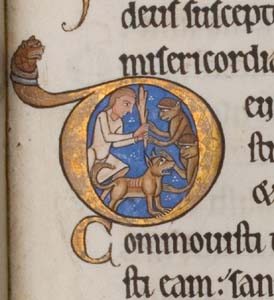 deus suscept
misericordia
Deu
st
&
Commouisti t
sti eam: san